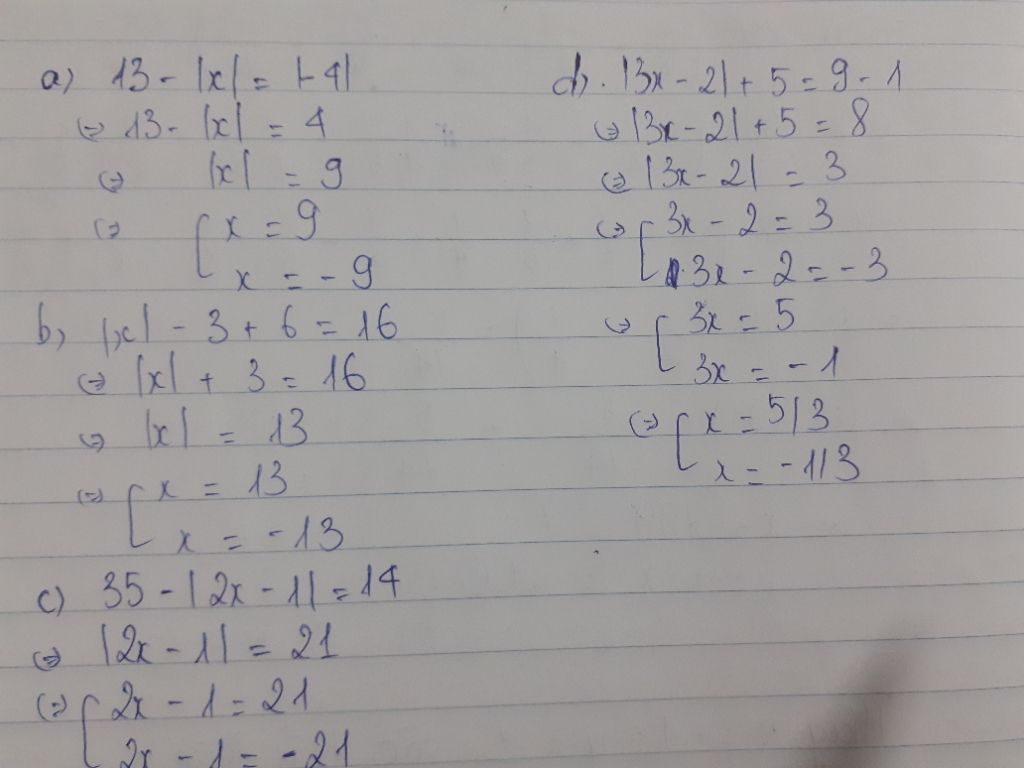 a) 13 - |x| = |-4|
⇔ 13 - |x| = 4
⇔ |x| = 9
⇔ [ x = 9
x = -9
b) |x| - 3 + 6 = 16
⇔ |x| + 3 = 16
⇔ |x| = 13
⇔ [ x = 13
x = -13
c) 35 - |2x - 1| = 14
⇔ |2x - 1| = 21
⇔ [ 2x - 1 = 21
2x - 1 = -21
d) |3x - 2| + 5 = 9 - 1
⇔ |3x - 2| + 5 = 8
⇔ |3x - 2| = 3
⇔ [ 3x - 2 = 3
3x - 2 = -3
⇔ [ 3x = 5
3x = -1
⇔ [ x = 5/3
x = -1/3